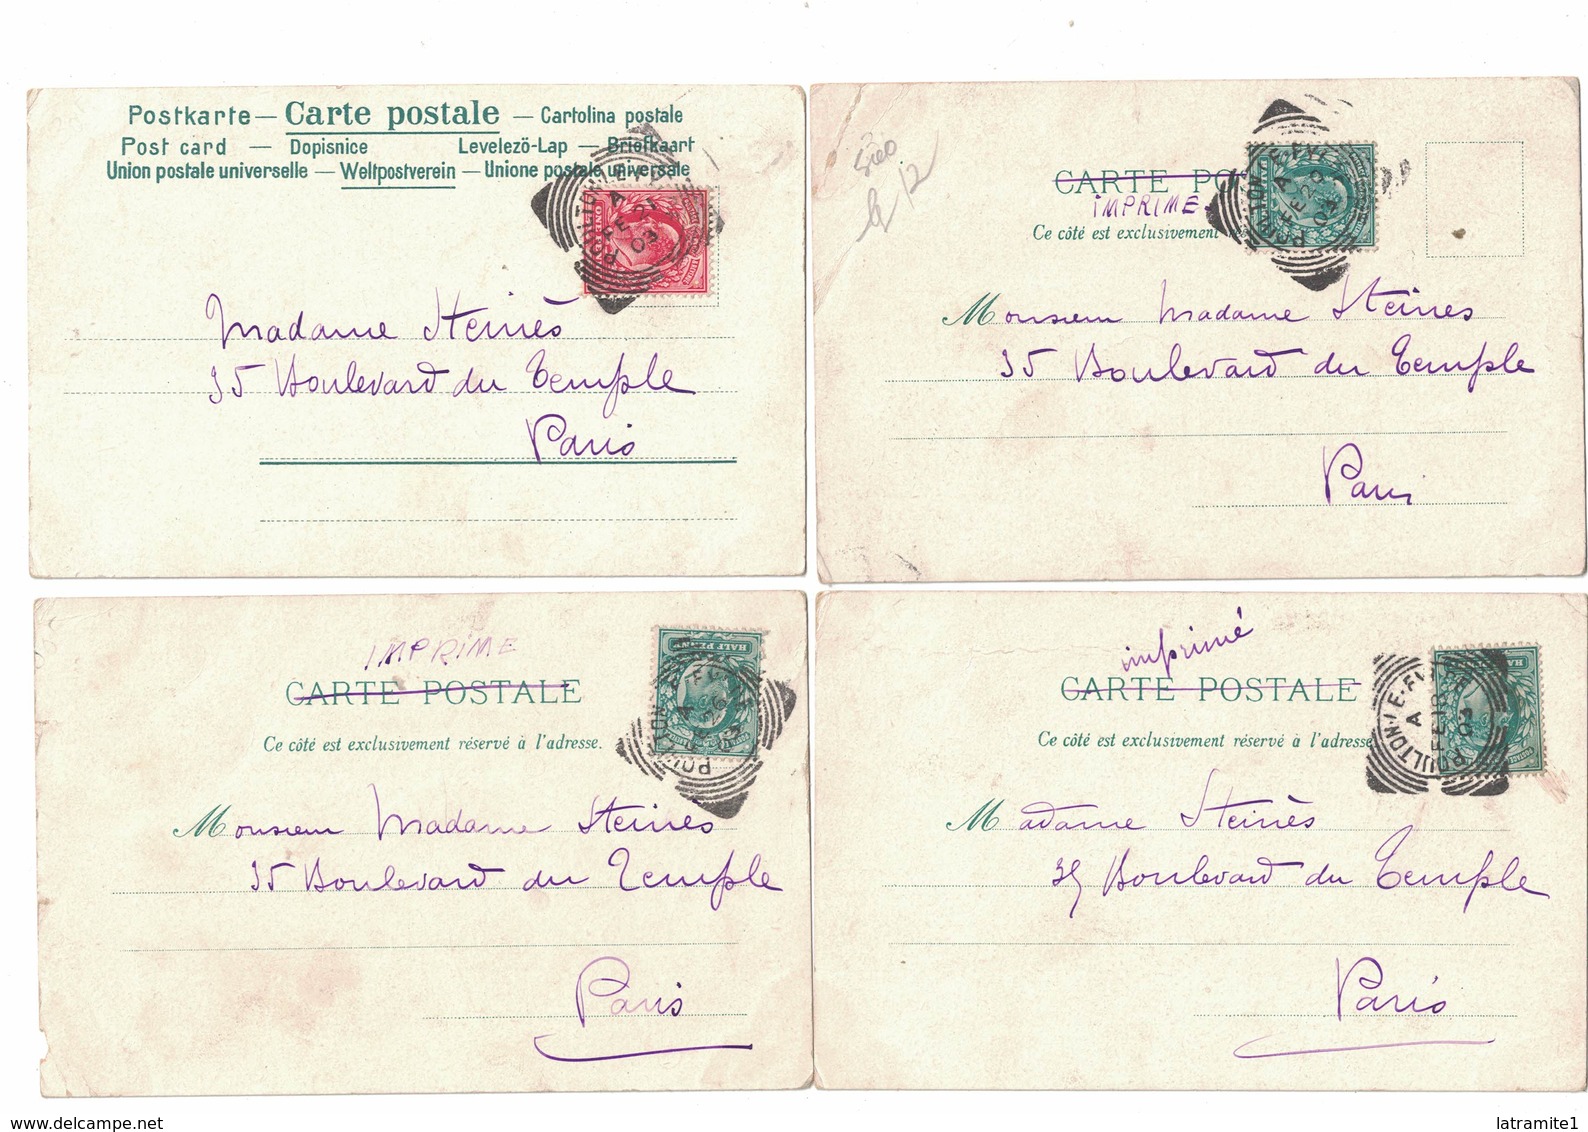 Postkarte — Carte postale — Cartolina postale
Post card — Dopisnice Levelezö-Lap — Briefkaart
Union postale universelle — Weltpostverein — Unione postale universale
POULTON-LE-FYLDE
A
FE 21
03
Madame Steinès
35 Boulevard du Temple
Paris
5160
12
CARTE PO
IMPRIME
Ce côté est exclusivement
POULTON-LE-FYLDE
A
FE 20
03
Monsieur Madame Steines
35 Boulevard du Temple
Paris
IMPRIME
CARTE POSTALE
Ce côté est exclusivement réservé à l'adresse.
HALF PENNY
POULTON-LE-FYLDE
A
FE 26
03
Monsieur Madame Steines
35 Boulevard du Temple
Paris
imprimé
CARTE POSTALE
Ce côté est exclusivement réservé à l'adresse
POULTON-LE-FYLDE
A
FE 10
03
Madame Steinès
35 Boulevard du Temple
Paris
www.delcampe.net
latramite1